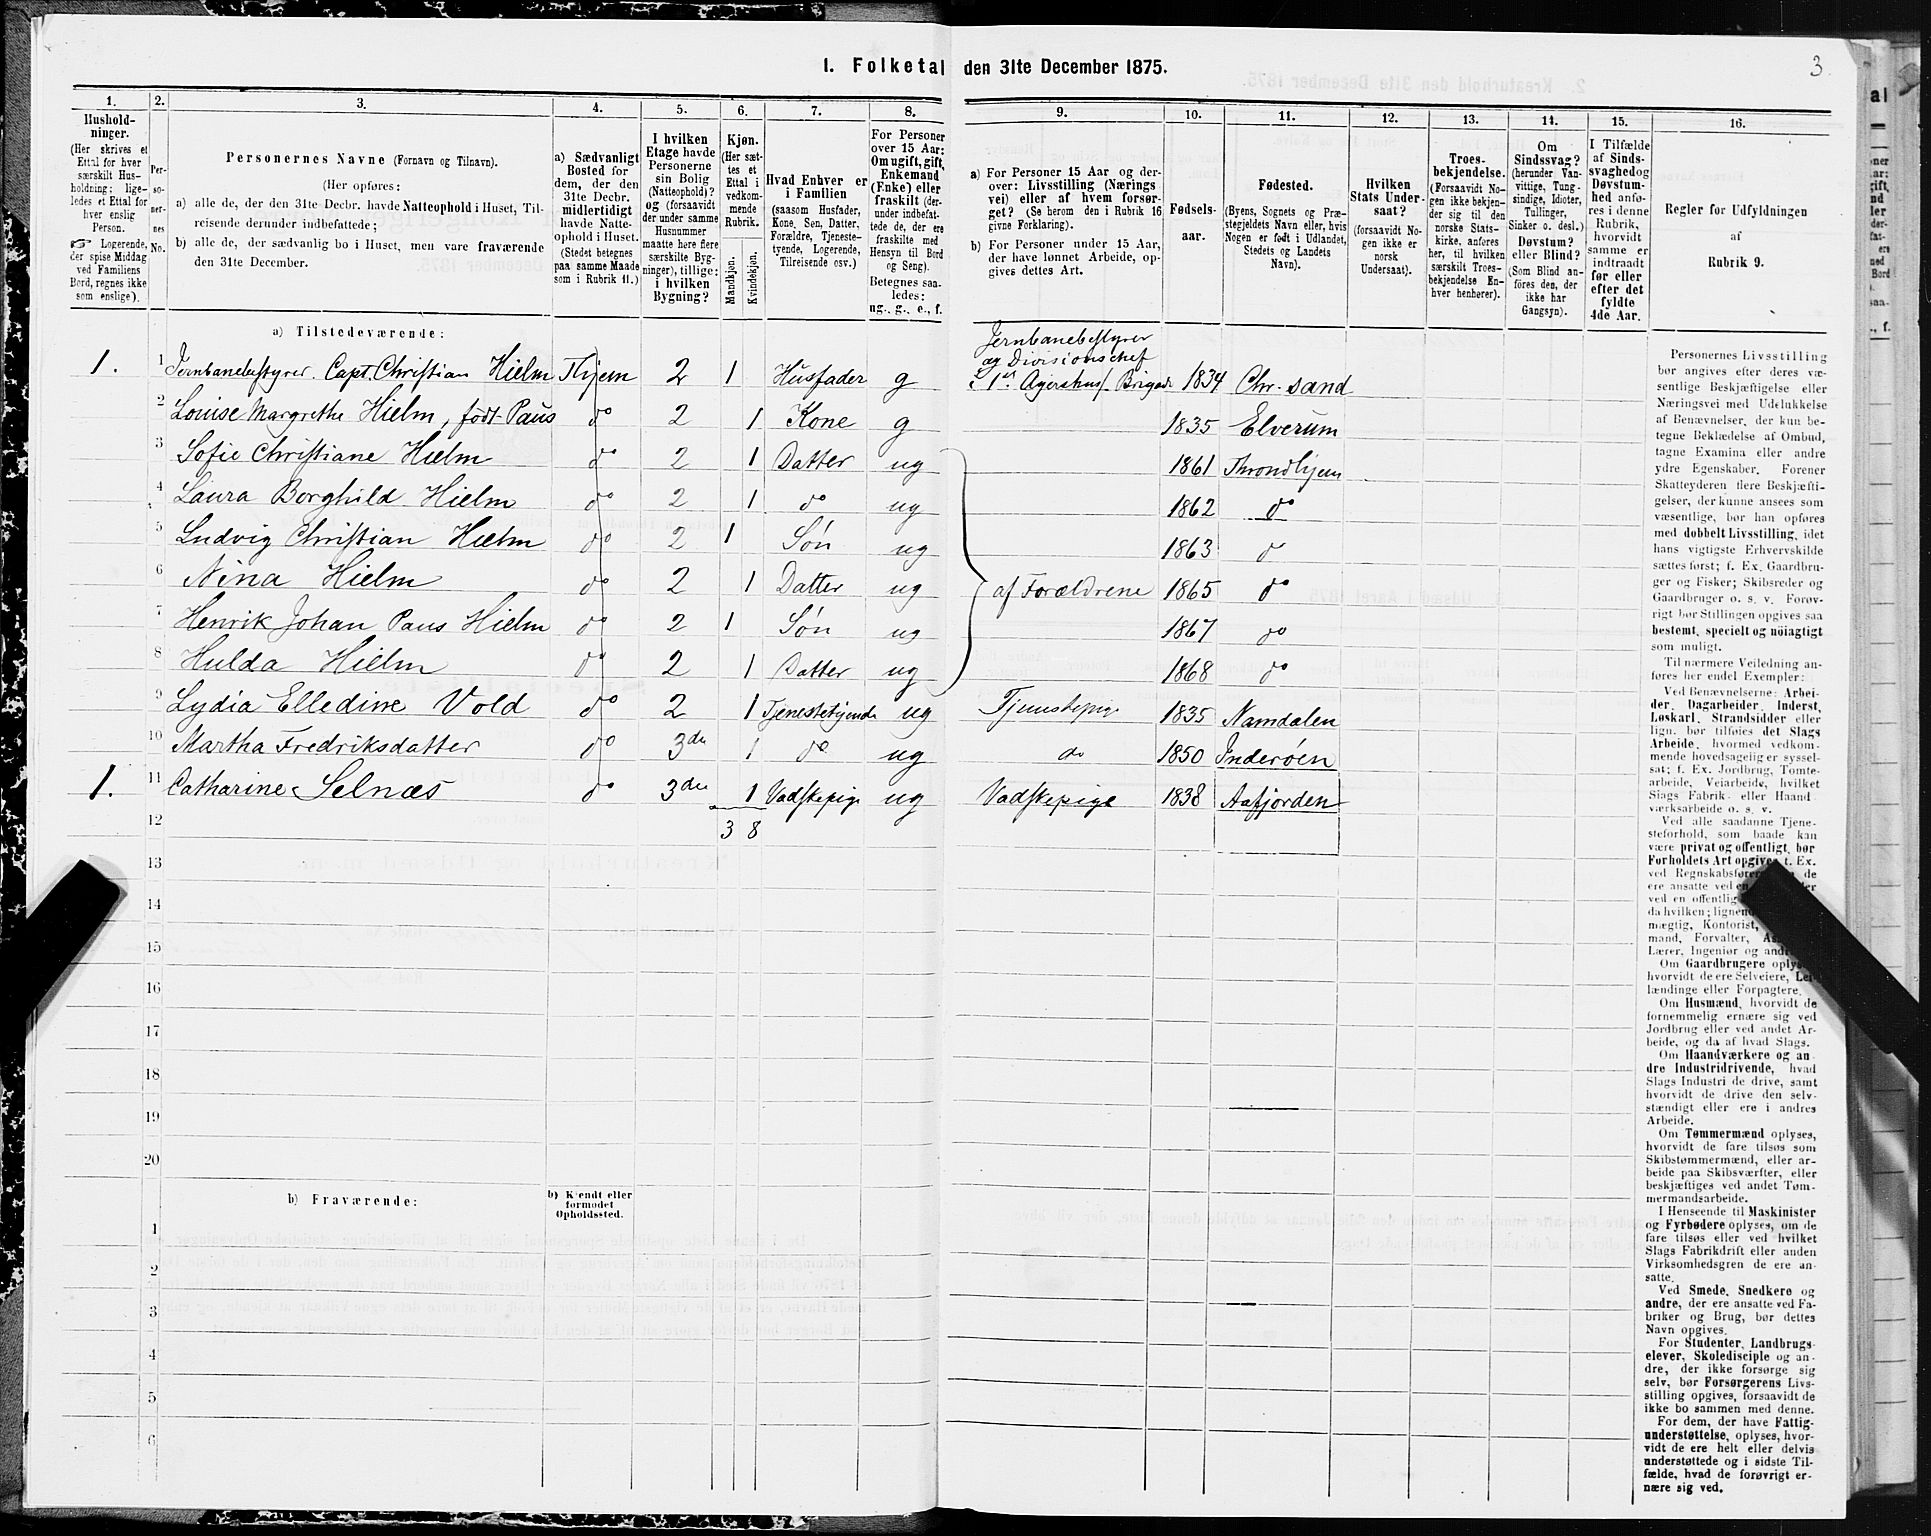 3
1. Folketal den 31te December 1875.
1.
2.
3.
4.
5.
6.
7.
8.
9.
10.
11.
12.
13.
14.
15.
16.
Hushold-
ninger.
(Her skrives et
Ettal for hver
særskilt Hus-
holdning; lige-
ledes et Ettal for
hver enslig
Person.
☞ Logerende,
der spise Middag
ved Familiens
Bord, regnes ikke
som enslige).
Per-
so-
ner-
nes
No.
Personernes Navne (Fornavn og Tilnavn).
(Her opføres:
a) alle de, der den 31te Decbr. havde Natteophold i Huset, Til-
reisende derunder indbefattede;
b) alle de, der sædvanlig bo i Huset, men vare fraværende
den 31te December.
a) Sædvanligt
Bosted for
dem, der den
31te Decbr.
midlertidigt
havde Natte-
ophold i Huset.
(Stedet betegnes
paa samme Maade
som i Rubrik 11.)
I hvilken
Etage havde
Personerne
sin Bolig
(Natteophold)?
og (forsaavidt
der under samme
Husnummer
maatte høre flere
særskilte Byg-
ninger), tillige:
i hvilken
Bygning?
Kjøn.
(Her sæt-
tes et
Ettal i
vedkom-
mende
Rubrik.
Mandkjøn.
Kvindekjøn.
Hvad Enhver er
i Familien
(saasom Husfader,
Kone, Søn, Datter,
Forældre, Tjeneste-
tyende, Logerende,
Tilreisende osv.)
For Personer
over 15 Aar:
Om ugift, gift,
Enkemand
(Enke) eller
fraskilt (der-
under indbefat-
tede de, der ere
fraskilte med
Hensyn til Bord
og Seng).
Betegnes saa-
ledes:
ug., g., e., f.
a) For Personer 15 Aar og der-
over: Livsstilling (Nærings
vei) eller af hvem forsør-
get? (Se herom den i Rubrik 16
givne Forklaring).
b) For Personer under 15 Aar,
der have lønnet Arbeide, op-
gives dettes Art.
Fødsels-
aar.
Fødested.
(Byens, Sognets og Præ-
stegjeldets Navn eller, hvis
Nogen er født i Udlandet,
Stedets og Landets
Navn).
Hvilken
Stats Under-
saat?
(forsaavidt No-
gen ikke er
norsk
Undersaat).
Troes-
bekjendelse.
(Forsaavidt No-
gen ikke bekjen-
der sig til den
norske Stats-
kirke, anføres
her, til hvilken
særskilt Troes-
bekjendelse En-
hver henhører).
Om
Sindssvag?
(herunder Van-
vittige, Tung-
sindige, Idioter,
Tullinger,
Sinker o. desl.)
Døvstum?
eller Blind?
(Som Blind an-
føres den, der
ikke har
Gangsyn).
I Tilfælde
af Sinds-
svaghed og
Døvstum-
hed anfø-
res i denne
Rubrik,
hvorvidt
samme er
indtraadt
før eller
efter det
fyldte
4de Aar.
Regler for Udfyldningen
af
Rubrik 9.
a) Tilstedeværende:
Jernbanebestyrer
og Divisionschef
1. 1 Jernbanebestyrer. Capt. Christian Hielm Thjem 2 1 Husfader g i 1ste Agershus/ Brigade 1834 Chr.sand
2 Louise Margrethe Hielm, født Paus do 2 1 Kone g 1835 Elverum
3 Sofie Christiane Hielm do 2 1 Datter ug 1861 Throndhjem
4 Laura Borghild Hielm do 2 1 do ug 1862 do
5 Ludvig Christian Hielm do 2 1 Søn ug 1863 do
6 Nina Hielm do 2 1 Datter ug af Forældrene 1865 do
7 Henrik Johan Paus Hielm do 2 1 Søn ug 1867 do
8 Hulda Hielm do 2 1 Datter ug 1868 do
9 Lydia Elledine Vold do 2 1 Tjenestetyende ug Tjenestepige 1835 Namdalen
10 Martha Fredriksdatter do 3die 1 do ug do 1850 Inderøen
1. 11 Catharine Selnæs do 3die 1 Vadskepige ug Vadskepige 1838 Aafjorden
12 3 8
13
14
15
16
17
18
19
20
b) Fraværende:
b) Kjendt eller
formodet
Opholdssted.
1
2
3
4
5
6
Personernes Livsstilling
bør angives efter deres væ-
sentlige Beskjæftigelse eller
Næringsvei med Udelukkelse
af Benævnelser, der kun be-
tegne Beklædelse af Ombud,
tagne Examina eller andre
ydre Egenskaber. Forener
Skatteyderen flere Beskjæfti-
gelser, der kunne ansees som
væsentlige, bør han opføres
med dobbelt Livsstilling, idet
hans vigtigste Erhvervskilde
sættes først; f. Ex. Gaardbru-
ger og Fisker; Skibsreder og
Gaardbruger o. s. v. Forøv-
rigt bør Stillingen opgives saa
bestemt, specielt og nöiagtigt
som muligt.
Til nærmere Veiledning an-
føres her endel Exempler:
Ved Benævnelserne: Arbei-
der, Dagarbeider, Inderst,
Løskarl, Strandsidder eller
lign. bør tilføies det Slags
Arbeide, hvormed vedkom-
mende hovedsagelig er syssel-
sat; f. Ex. Jordbrug, Tomte-
arbeide, Veiarbeide, hvilket
Slags Fabrik- eller Haand-
værksarbeide o. s. v.
Ved alle saadanne Tjene-
steforhold, som baade kan
være privat og offentligt, bør
Forholdets Art opgives t. Ex.
ved Regnskabsfører, de
ere ansatte ved en
ved en offentlig
da hvilken; lignende
mægtig, Kontorist,
mand, Forvalter,
Lærer, Ingeniør og andre
Om Gaardbrugere oplyses,
hvorvidt de ere Selveiere, Lei-
lændinge eller Forpagtere.
Om Husmænd, hvorvidt de
fornemmelig ernære sig ved
Jordbrug eller ved andet Ar-
beide, og da af hvad Slags.
Om Haandværkere og an-
dre Industridrivende, hvad
Slags Industri de drive, samt
hvorvidt de drive den selv-
stændigt eller ere i andres
Arbeide.
Om Tømmermænd oplyses,
hvorvidt de fare tilsøs som
Skibstømmermænd, eller ar-
beide paa Skibsværfter, eller
beskjæftiges ved andet Tøm-
mermandsarbeide.
I Henseende til Maskinister
og Fyrbødere oplyses, om de
fare tilsøs eller ved hvilket
Slags Fabrikdrift eller anden
Virksomhedsgren de ere an-
satte.
Ved Smede, Snedkere og
andre, der ere ansatte ved Fa-
briker og Brug, bør dettes
Navn opgives.
For Studenter, Landbrugs-
elever, Skoledisciple og an-
dre, der ikke forsørge sig
selv, bør Forsørgerens Livs-
stilling opgives, forsaavidt de
ikke bo sammen med denne.
For dem, der have Fattig-
understøttelse, oplyses, hvor-
vidt de ere helt eller delvis
understøttede og i sidste Til-
fælde, hvad de forøvrigt er-
nære sig ved.